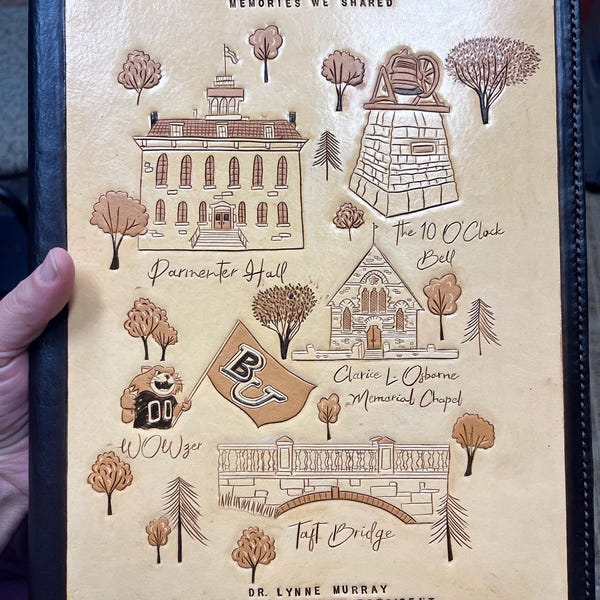 MEMORIES WE SHARED
The 10 O'Clock
Bell
Parmenter Hall
Clarice L Osborne
Memorial Chapel
BU
00
WOWzer
Taft Bridge
DR. LYNNE MURRAY
PRESIDENT